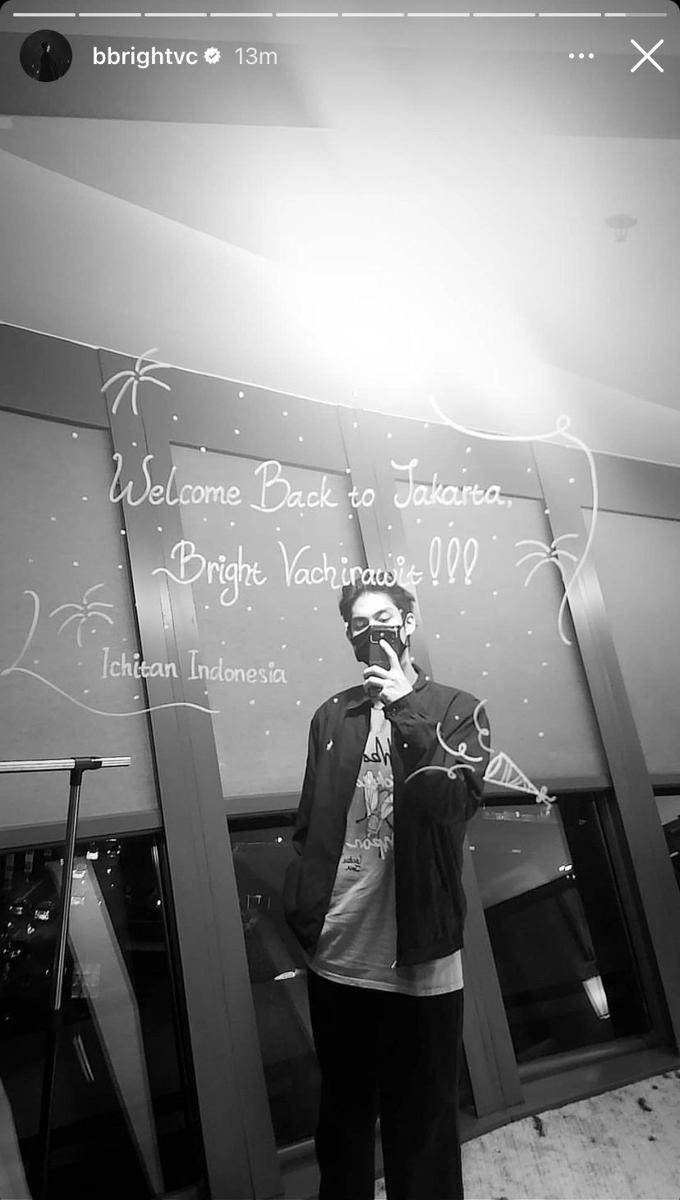 bbrightvc 13m
Welcome Back to Jakarta,
Bright Vachirawit!!!
Ichitan Indonesia